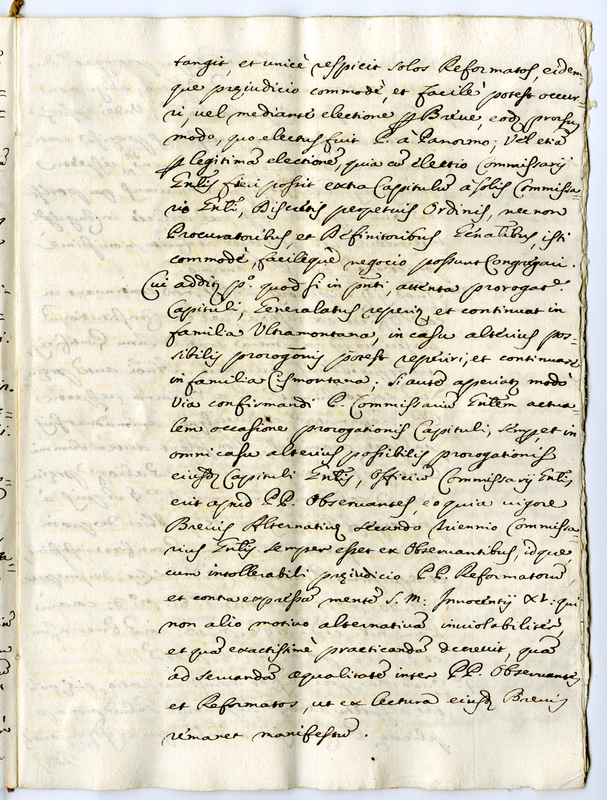 tangit, et unicè respicit solos Reformatos, eidem
que præjudicio commodè, et facilè potest occur-
ri, vel mediante electione p Breve, eod prorsus
modo, quo electus fuit P. à Panormo; Vel etiã
p legitimã electionẽ, quia cũ electio Commissarij
Gnlis fieri possit extra Capitulũ à solis Commissa-
rio Gnli, Discretis perpetuis Ordinis, nec non
Procuratoribus, et Definitoribus Gnalibus, isti
commodè, facileque negocio possunt Congregari.
Cui addit pº quod si in pnti, attenta prorogatne
Capituli, Generalatus reperit, et continuat in
familia Ultramontana, in casu alterius pos-
sibilis prorogonis potest reperiri, et continuare
in familia Cismontana; si autẽ aperiat modo
via confirmandi P. Commissariũ Gnlem actua-
lem occasione prorogationis Capituli, semp, et in
omni casu alterius possibilis prorogationis
eiusd Capituli Gnlis, Officiũ Commissarij Gnlis
erit apud PP. Observantes, eo quia vigore
Brevis Alternativæ secundo triennio Commissa-
rius Gnlis semper esset ex Observantibus, idque
cum intollerabili præjudicio PP. Reformatorũ,
et contra expressã mentẽ S. M. Innocentij XI. qui
non alio motivo alternativã inviolabilitèr,
et quã exactissimè practicandã decrevit, quã
ad servandã æqualitatẽ inter PP. Observantes
et Reformatos, ut ex lectura eiusd Brevis
remanet manifestũ.